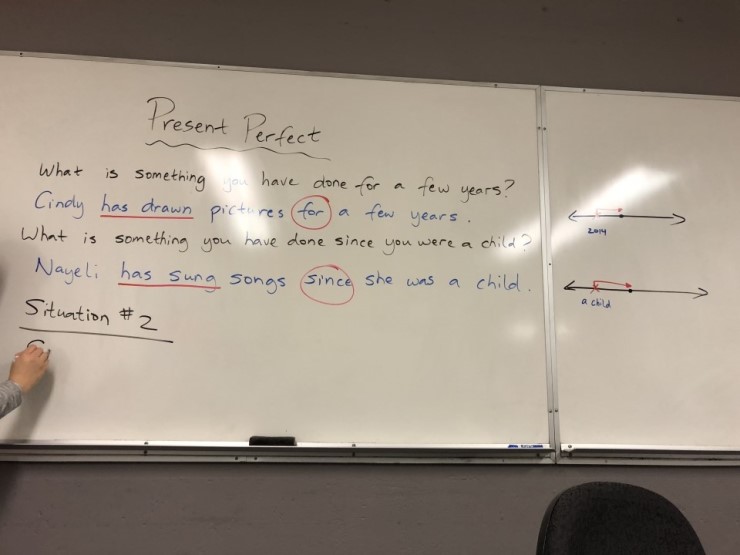 Present Perfect
What is something you have done for a few years?
Cindy has drawn pictures for a few years.
What is something you have done since you were a child?
Nayeli has sung songs since she was a child.
Situation #2
2014
a child